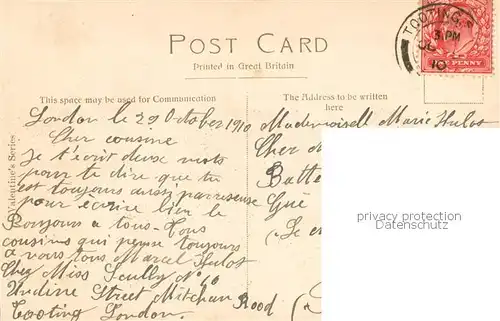 POST CARD
Printed in Great Britain
TOOTING, S
3 PM
10
ONE PENNY
This space may be used for Communication
The Address to be written here
Valentine's Series
London le 29 October 1910
Cher cousine
Je t'écrit deux mots
pour te dire que tu
est toujours aussi parreseuse
pour écrire bien le
Bonjours a tous. Tous
cousins qui pense toujours
a vous tous Marcel Hulot
Chez Miss Scully No 40
Undine Street Mitcham Road
Tooting London.
Mademoiselle Marie Hulot
Cher M
Batte
Gué
(Le c
(
privacy protection
Datenschutz